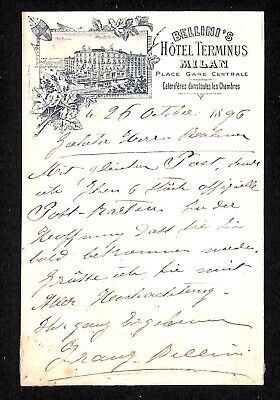 BELLINI'S
HÔTEL TERMINUS
MILAN
PLACE GARE CENTRALE
Calorifères dans toutes les Chambres
le 26 October 1896
Geehrter Herr
Mit gleicher Post, sende
ich Ihnen 6 Stück offizielle
Post-Karten in der
Hoffnung dass Sie sie
bald bekommen werden.
Grüsse ich Sie mit
Aller Hochachtung
Ihr ganz Ergebener
Franz Bellini